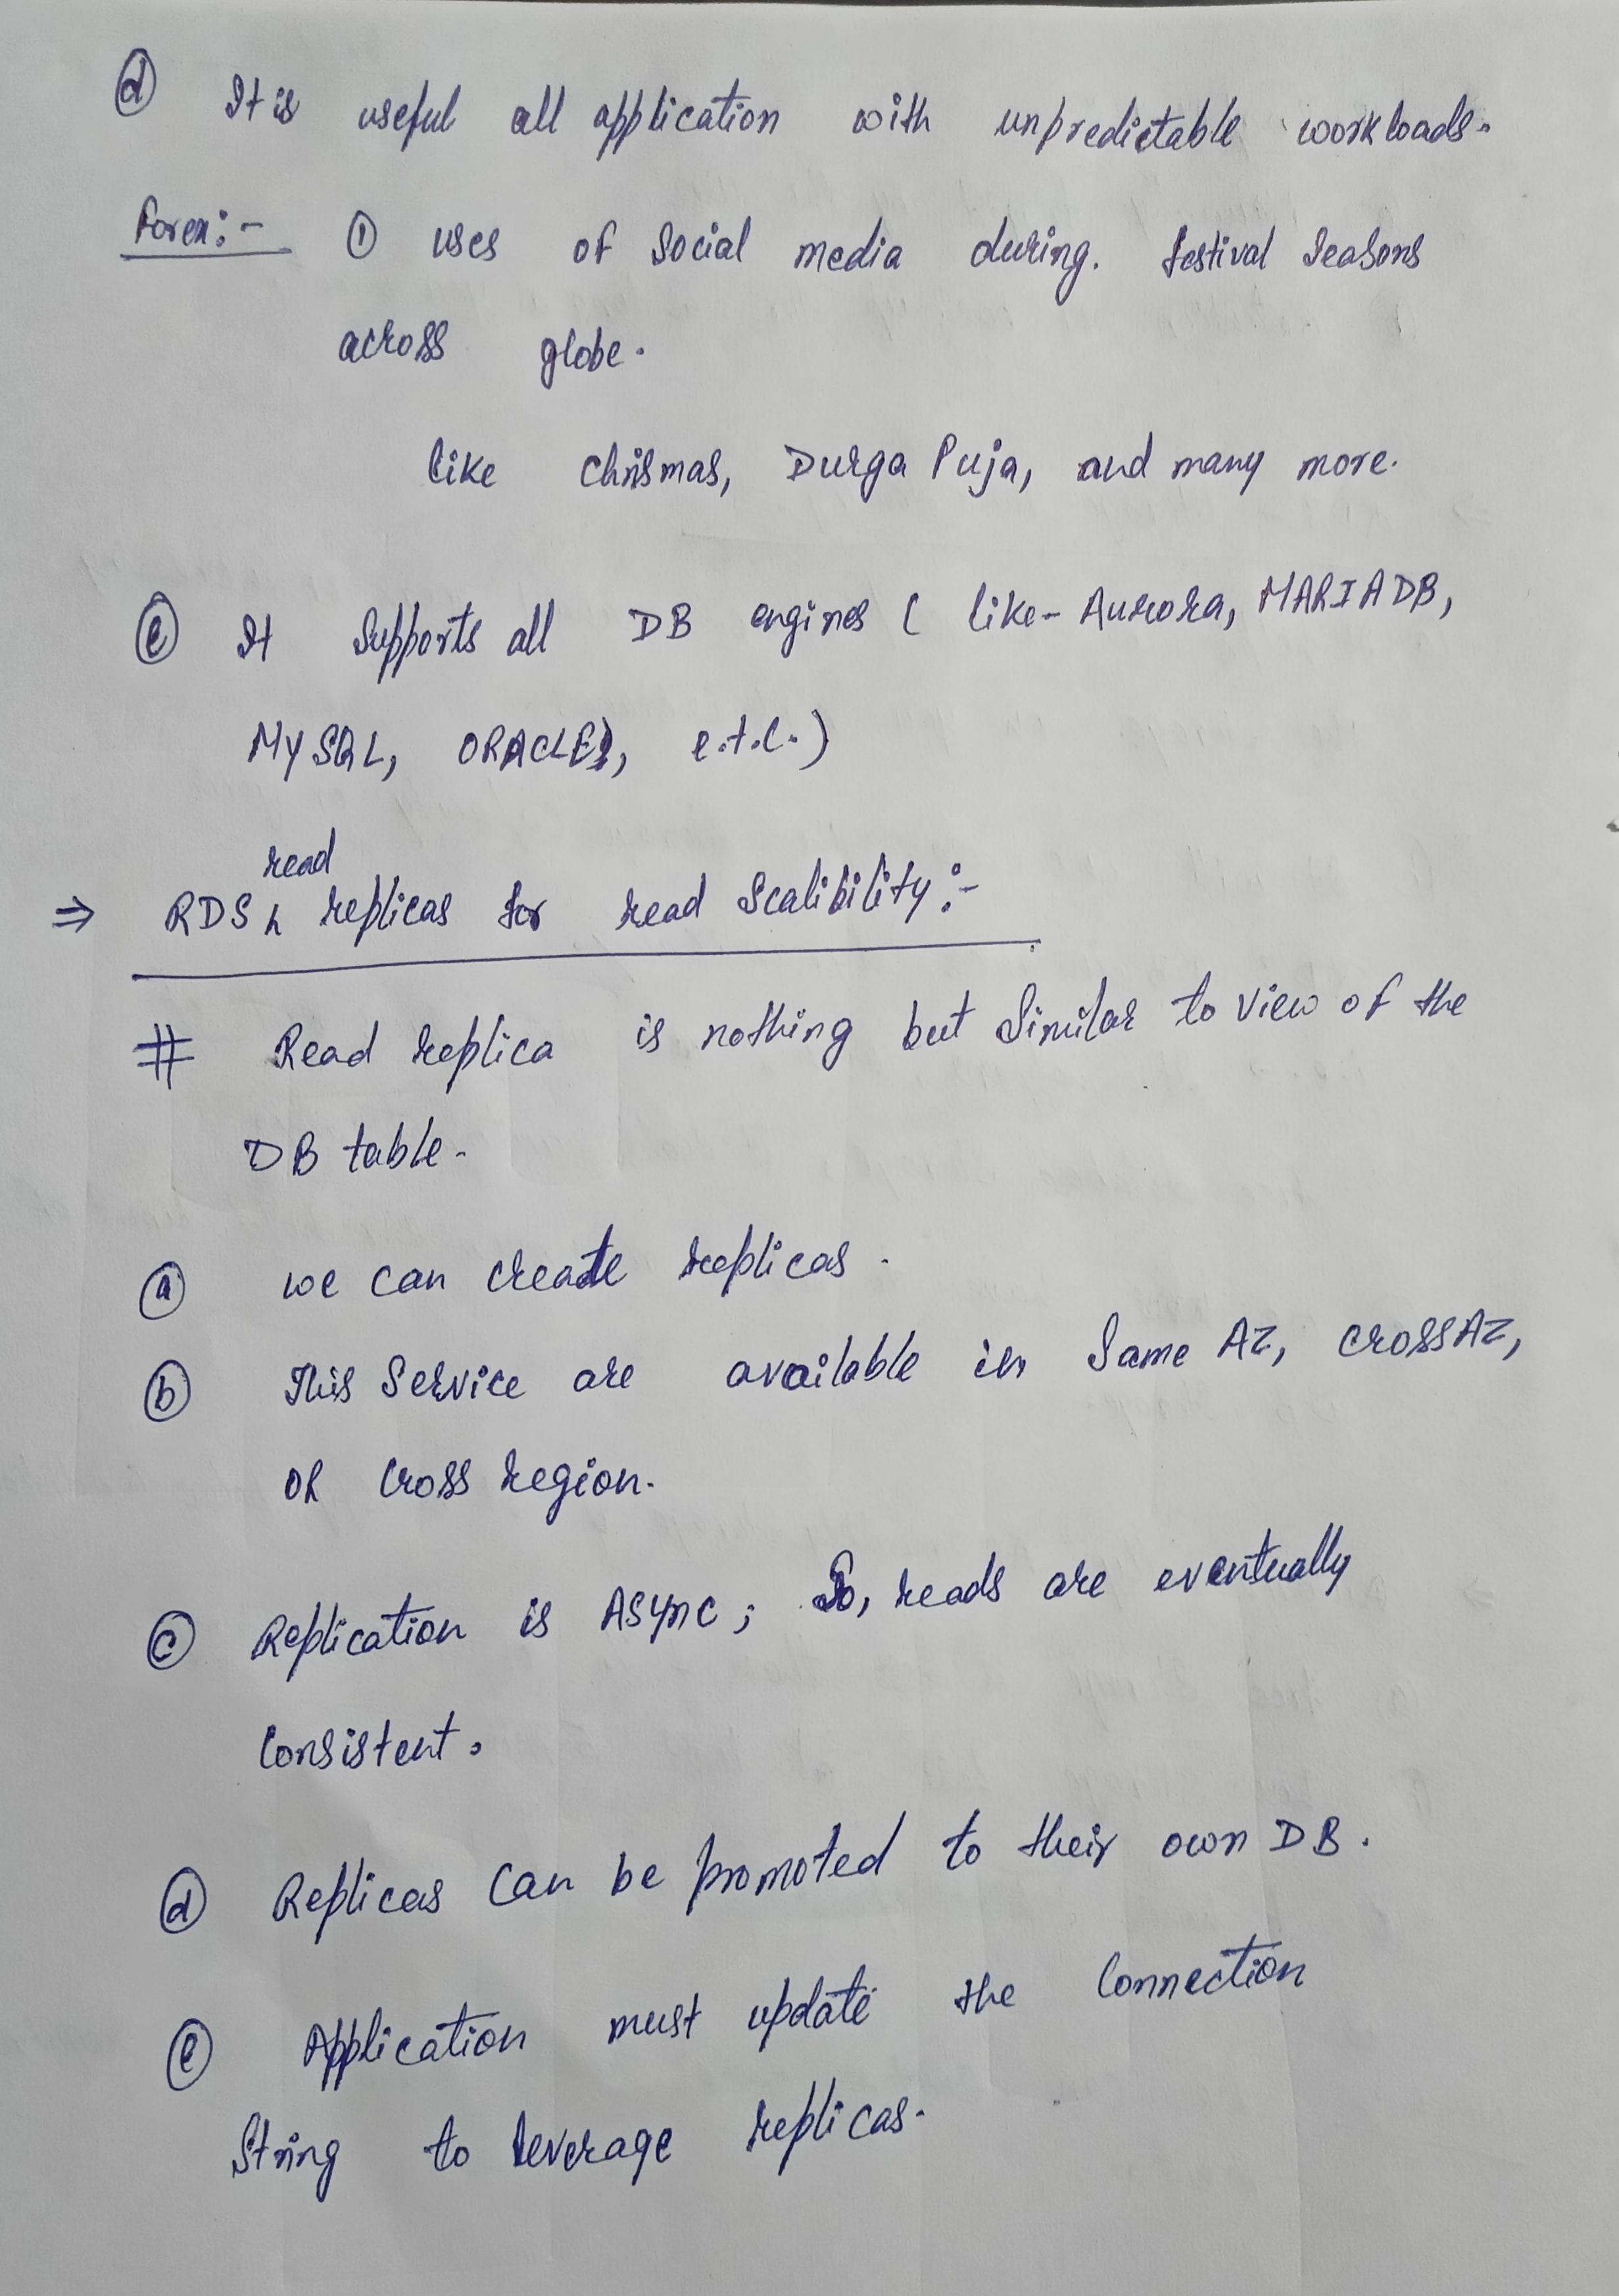 ⓓ It is useful all application with unpredictable workloads.
Forex:- ① uses of Social media during. festival Seasons
across globe.
like Chrismas, Durga Puja, and many more.
ⓔ It Supports all DB engines ( like- Aurora, MARIADB,
MySQL, ORACLE, e.t.c.)
read
⇒ RDS ʌ replicas for read Scalibility:-
# Read replica is nothing but Similar to view of the
DB table.
ⓐ we can create replicas.
ⓑ This Service are available in Same AZ, cross AZ,
or cross region.
ⓒ Replication is ASync; So, reads are eventually
Consistent.
ⓓ Replicas Can be promoted to their own DB.
ⓔ Application must update the Connection
String to leverage replicas.